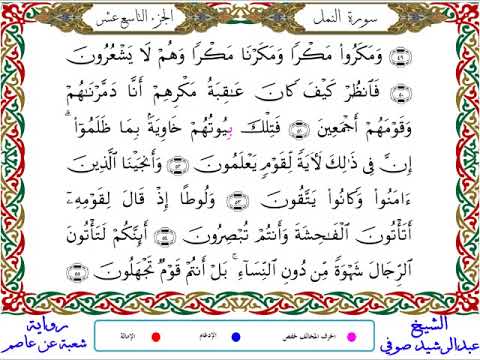 سورة النمل
الجزء التاسع عشر
﴿٤٩﴾ وَمَكَرُوا۟ مَكْرًا وَمَكَرْنَا مَكْرًا وَهُمْ لَا يَشْعُرُونَ
﴿٥٠﴾ فَٱنظُرْ كَيْفَ كَانَ عَٰقِبَةُ مَكْرِهِمْ إِنَّا دَمَّرْنَٰهُمْ
وَقَوْمَهُمْ أَجْمَعِينَ ﴿٥١﴾ فَتِلْكَ بِيُوتُهُمْ خَاوِيَةًۢ بِمَا ظَلَمُوٓا۟ ۗ
إِنَّ فِى ذَٰلِكَ لَءَايَةً لِّقَوْمٍ يَعْلَمُونَ ﴿٥٢﴾ وَأَنجَيْنَا ٱلَّذِينَ
ءَامَنُوا۟ وَكَانُوا۟ يَتَّقُونَ ﴿٥٣﴾ وَلُوطًا إِذْ قَالَ لِقَوْمِهِۦٓ
أَتَأْتُونَ ٱلْفَٰحِشَةَ وَأَنتُمْ تُبْصِرُونَ ﴿٥٤﴾ أَئِنَّكُمْ لَتَأْتُونَ
ٱلرِّجَالَ شَهْوَةً مِّن دُونِ ٱلنِّسَآءِ ۚ بَلْ أَنتُمْ قَوْمٌ تَجْهَلُونَ ﴿٥٥﴾
الشيخ
عبدالرشيد صوفي
الحرف المخالف لحفص
الإدغام
الإمالة
رواية
شعبة عن عاصم